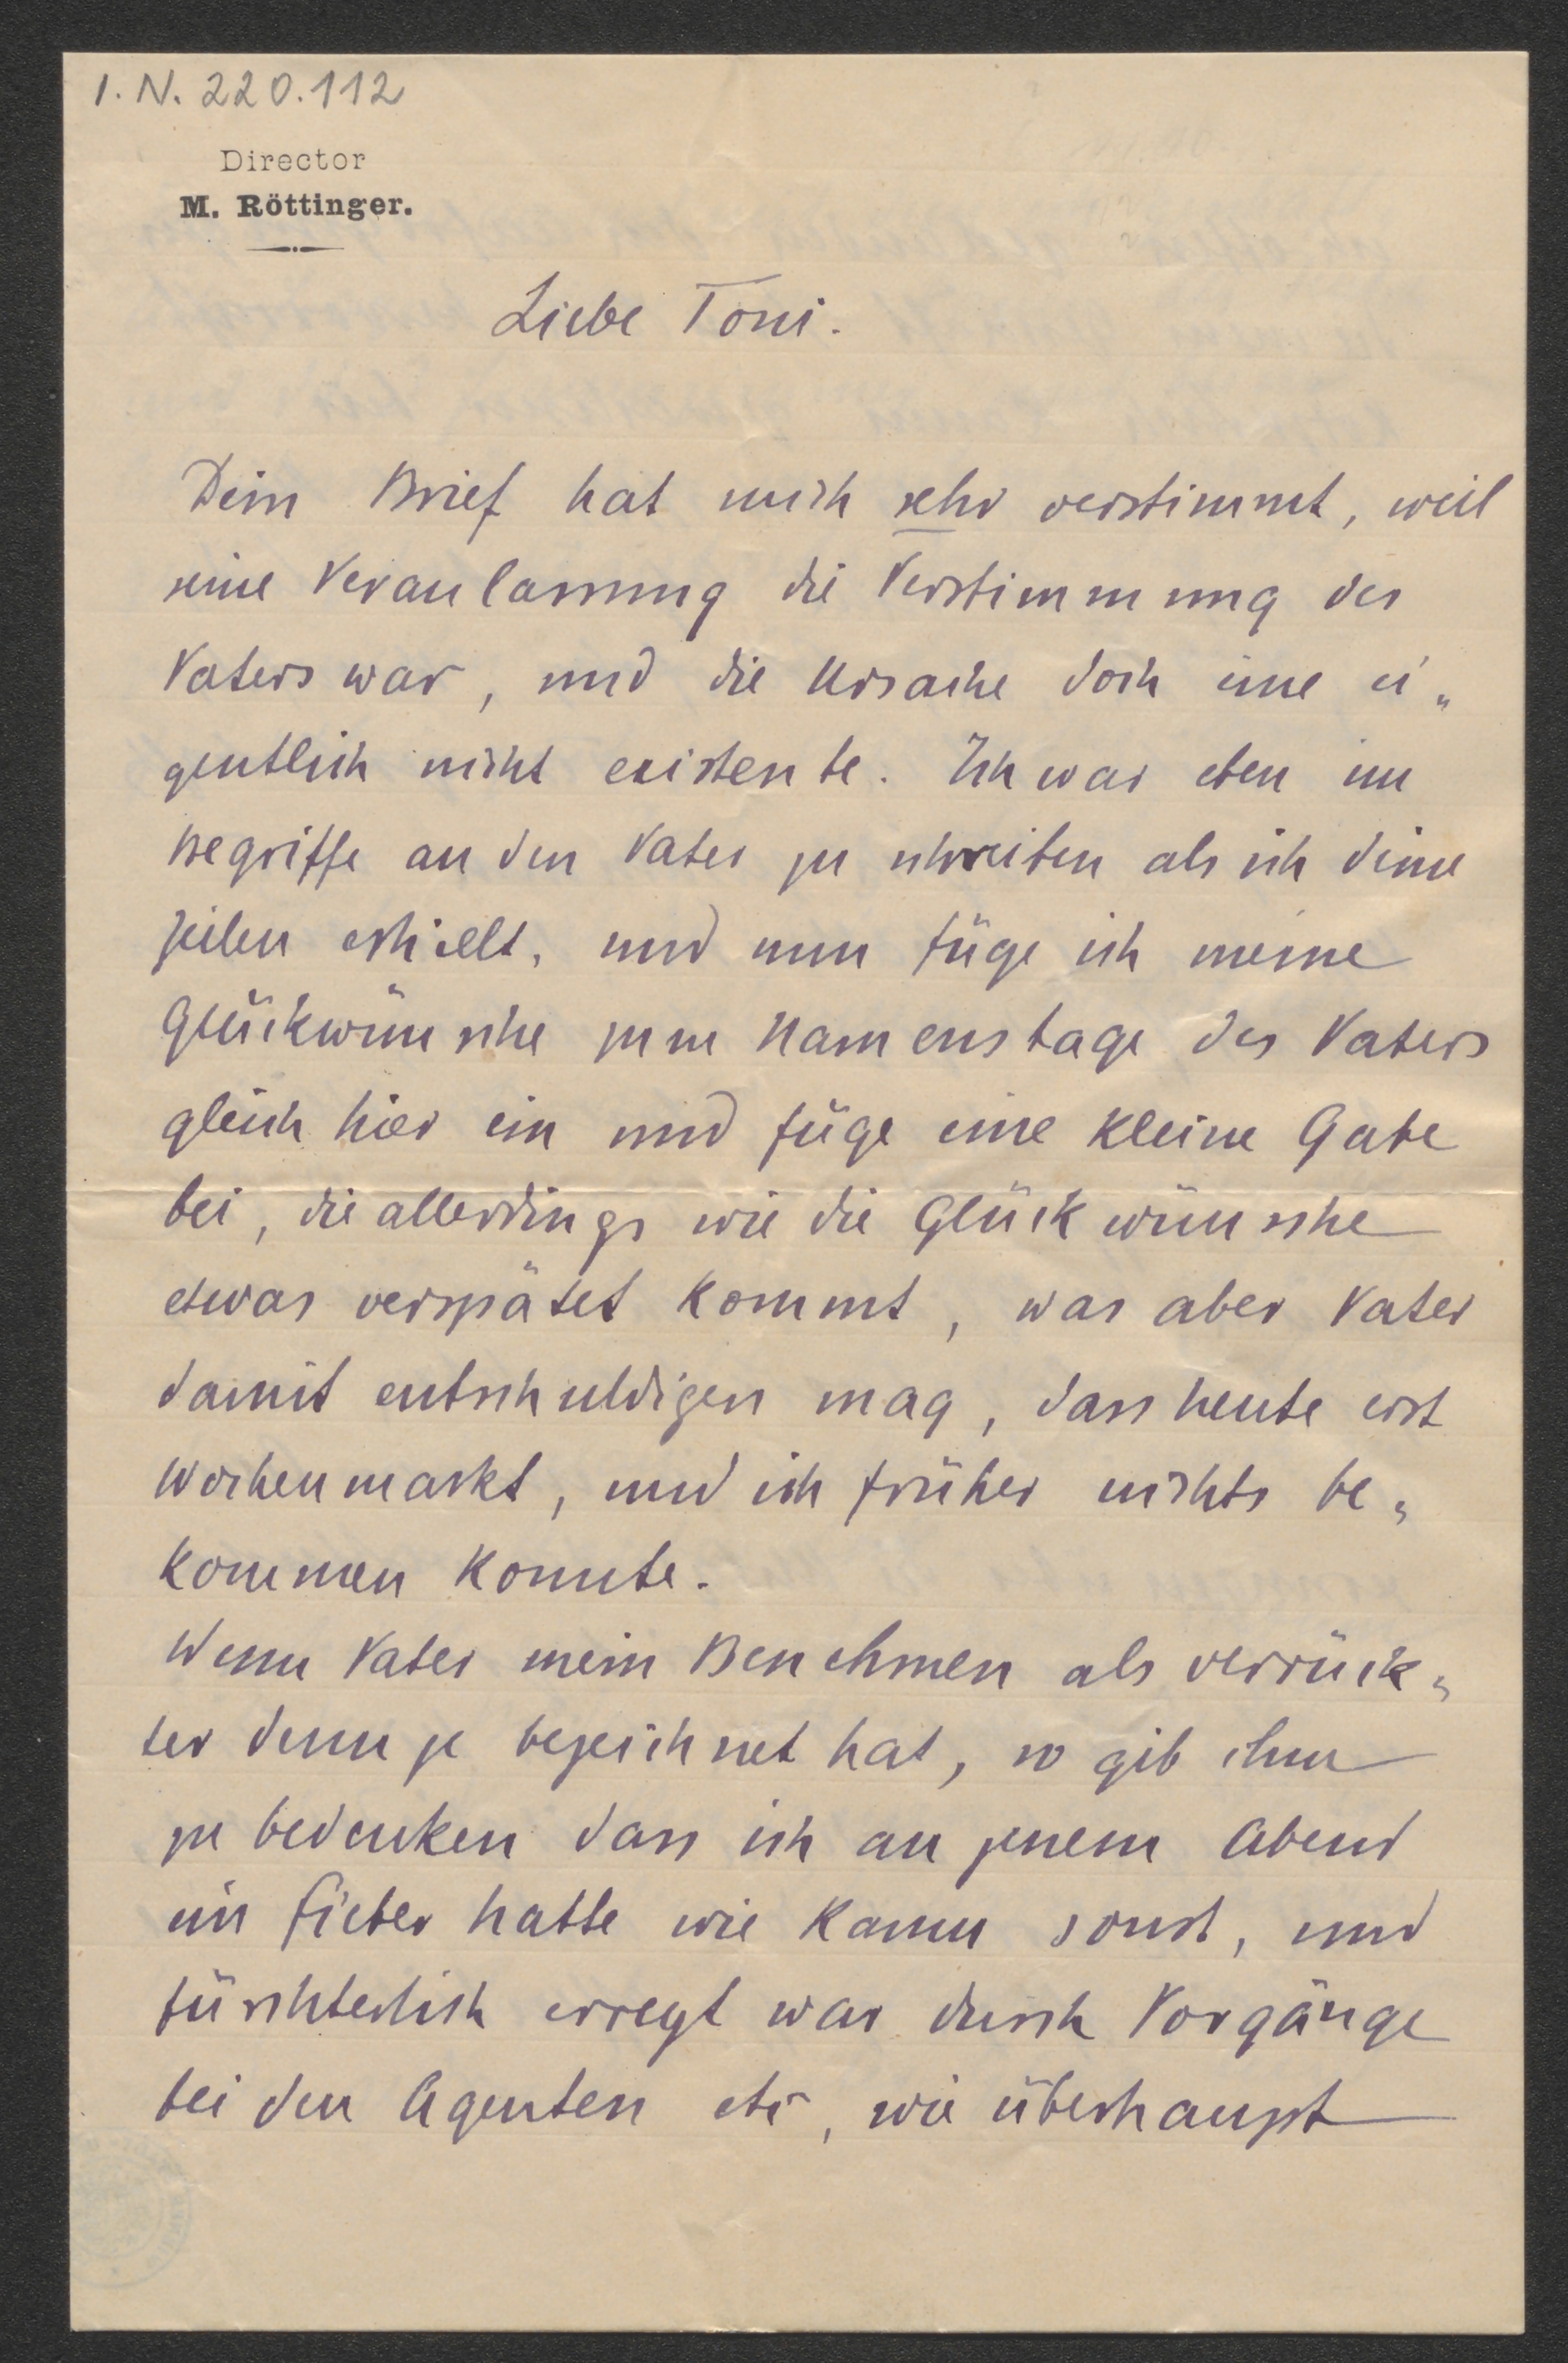 I.N. 220.112
Director
M. Röttinger.
Liebe Toni.
Dein Brief hat mich sehr verstimmt, weil
seine Veranlassung die Verstimmung des
Vaters war, und die Ursache doch eine ei„
gentlich nicht existente. Ich war eben im
Begriffe an den Vater zu schreiben als ich deine
Zeilen erhielt, und nun füge ich meine
Glückwünsche zum Namenstage des Vaters
gleich hier ein und füge eine kleine Gabe
bei, die allerdings wie die Glückwünsche
etwas verspätet kommt, was aber Vater
damit entschuldigen mag, dass heute erst
Wochenmarkt, und ich früher nichts be„
kommen konnte.
Wenn Vater mein Benehmen als verrück„
ter denn je bezeichnet hat, so gib ihm
zu bedenken dass ich an jenem Abend
ein Fieber hatte wie kaum sonst, und
fürchterlich erregt war durch Vorgänge
bei den Agenten etc, wie überhaupt